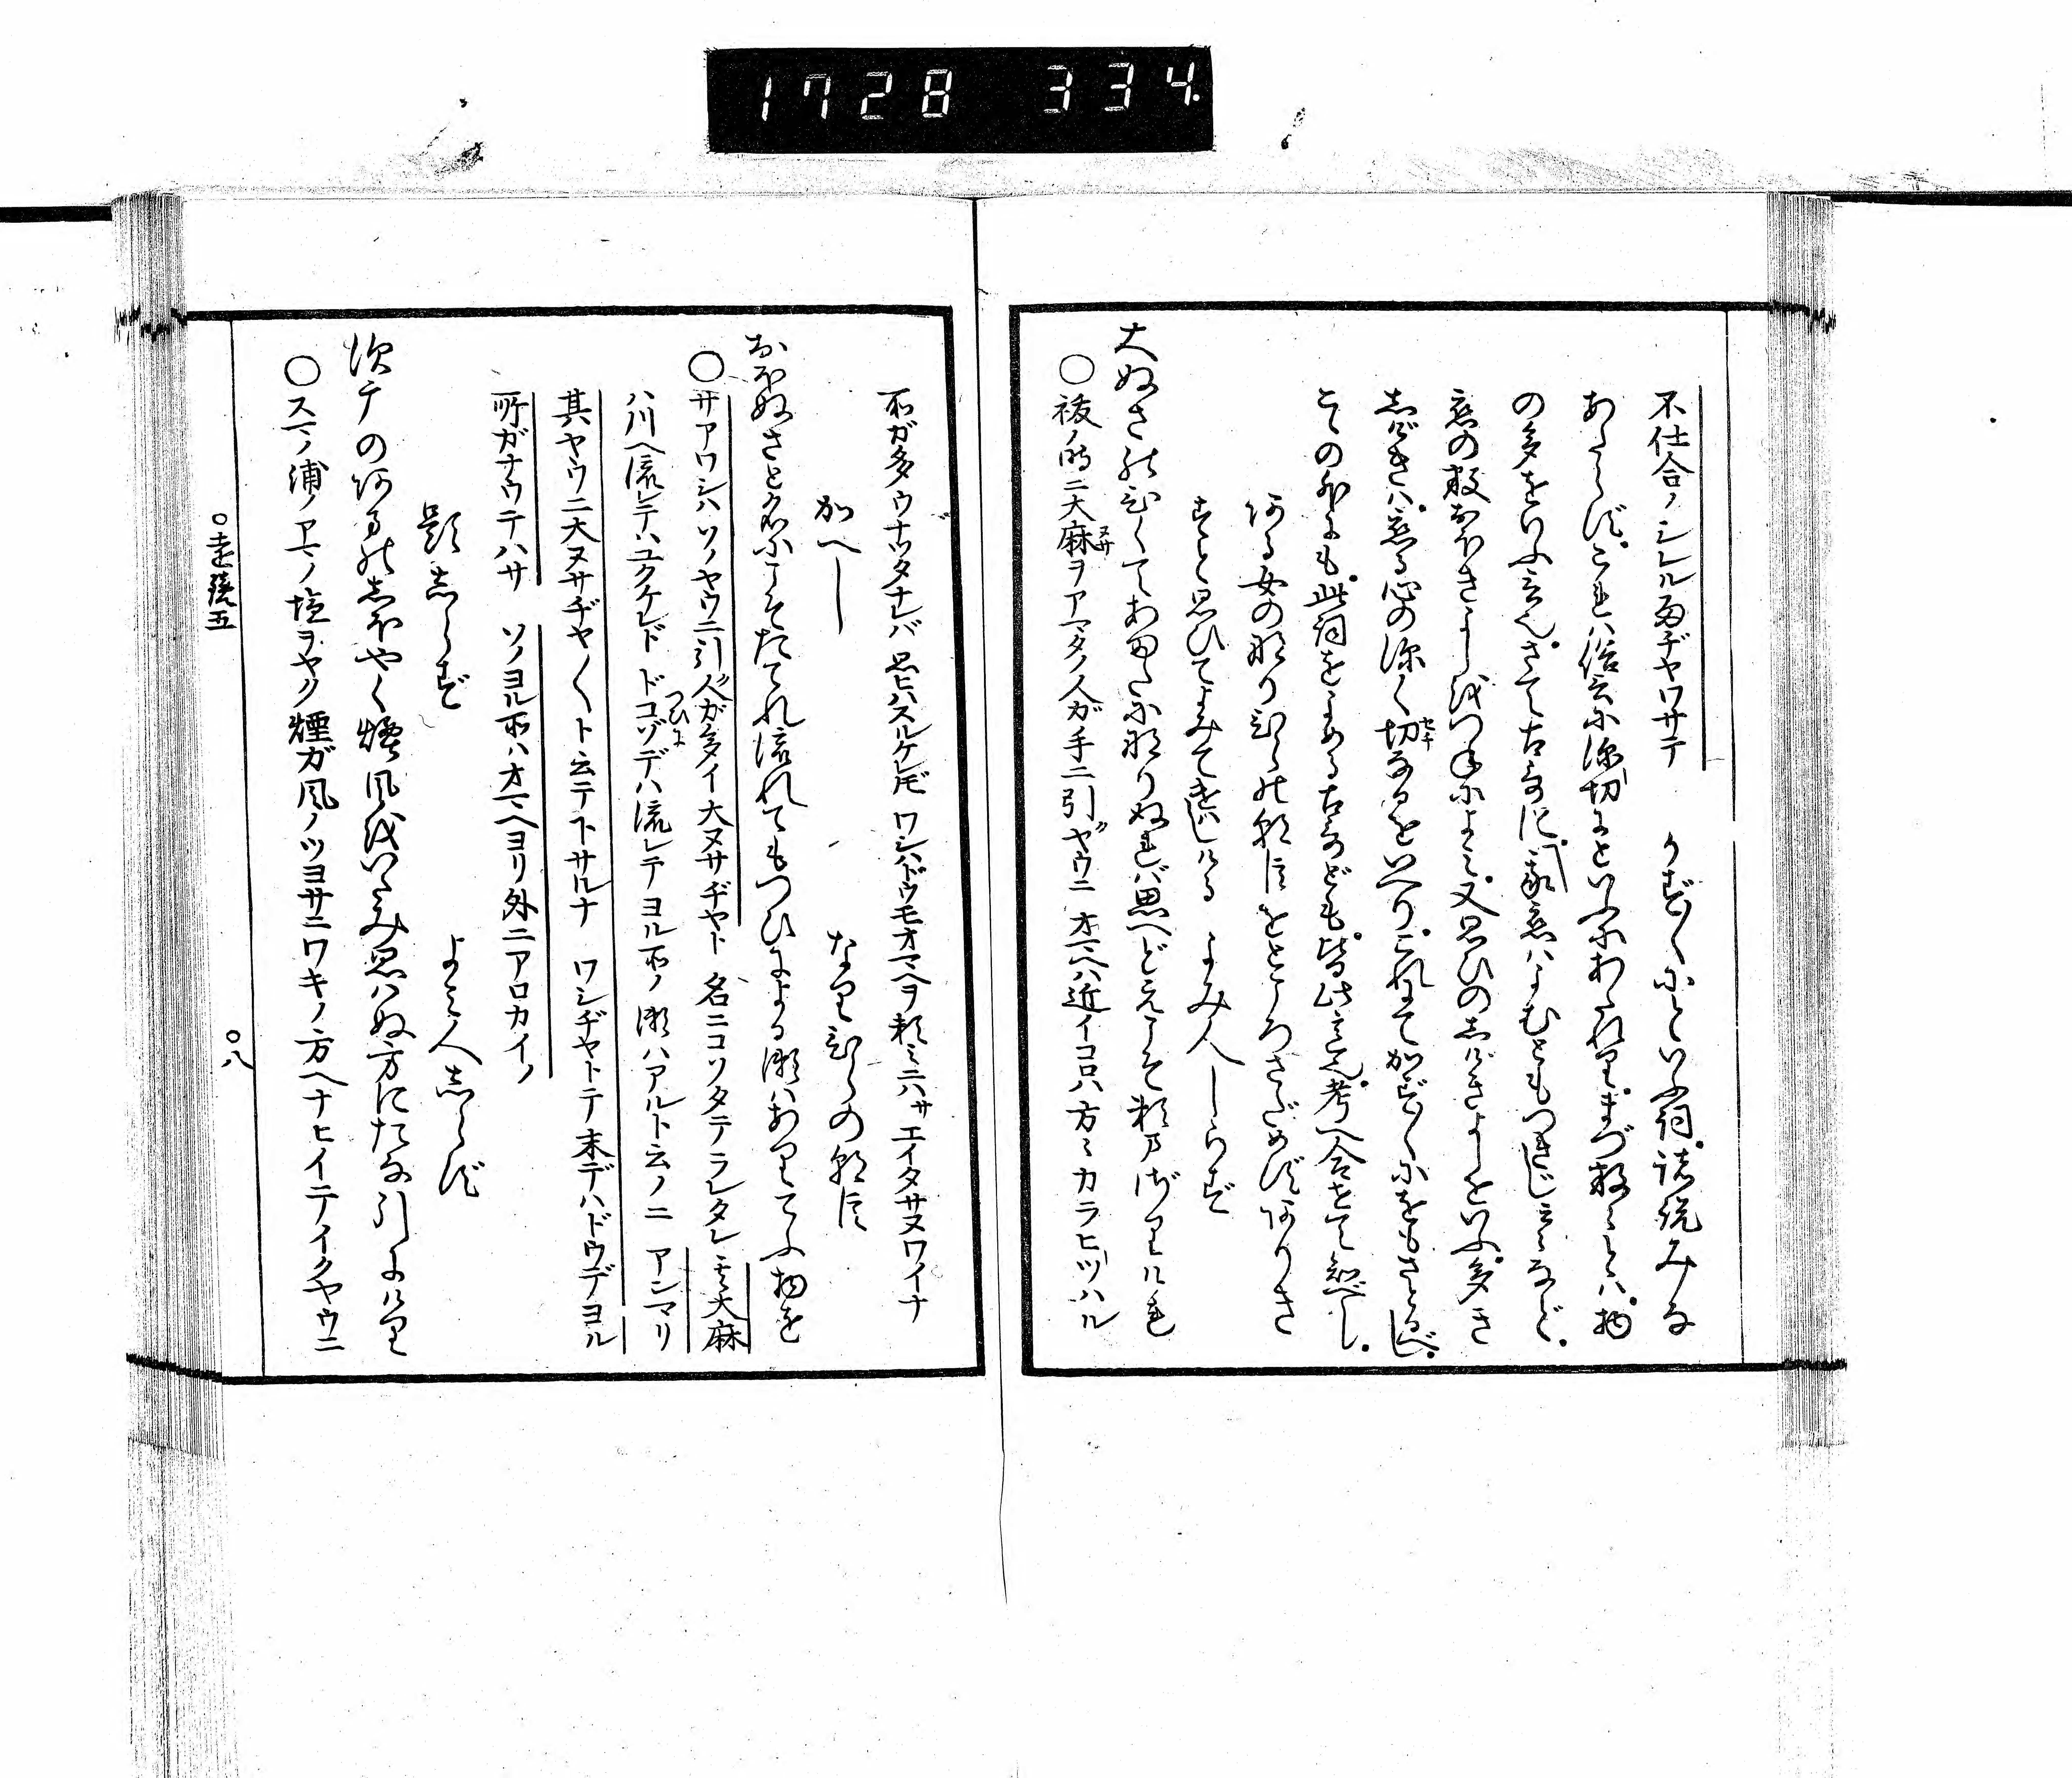 1728 334
不仕合ノシレル雨ヂヤワサテ かず〳〵にといふ詞。諸説みな
あたらず。これは俗言に深切にといふにあたれり。まづ数とは。物
の多きをいふ言也。さて古哥に。我恋はよむともつきじ云々など。
恋の数おほきよしをつねによみ。又思ひのしげきよしをいふ。多き
しげきは。恋る心の深く切なるをいへり。これにてかず〳〵にをもさとるべし。
その外にも。此詞をよめる古哥ども。皆此意也。考へ合せて知べし。
ある女のなりひらの朝臣をところさだめずありきす
すと思ひてよみてつかはしける よみ人しらず
大ぬさのひくてあまたになりぬれば思へどえこそ頼まざりけれ
○祓ノ時ニ大麻ヲアマタノ人ガ手ニ引クヤウニ オマヘハ近イコロハ方々カラヒツハル
所ガ多ウナツタナレバ 思ヒハスルケレドモ ワシハドウモオマヘヲ頼ミニハサエイタサヌワイナ
かへし なりひらの朝臣
おほぬさと名にこそたてれ流れてもつひによる瀬はありてふ物を
○サアワシハソノヤウニ引ク人ガ多イ大ヌサヂヤト 名ニコソタテラレタレ 云々大麻
ハ川ヘ流レテハユクケレド ドコゾデハ流レテヨル所ノ瀬ハアルト云ノニ アンマリ
其ヤウニ大ヌサヂヤ〳〵ト云テ下サルナ ワシヂヤトテ末デハドウデヨル
所ガナウテハサ ソノヨル所ハオマヘヨリ外ニアロカイノ
題しらず よみ人しらず
須广のあまのしほやく煙風をいたみ思はぬ方にたな引にけり
○スマノ浦ノアマノ塩ヲヤク煙ガ風ノツヨサニワキノ方ヘナヒイテイクヤウニ
○遠鏡五 ○八